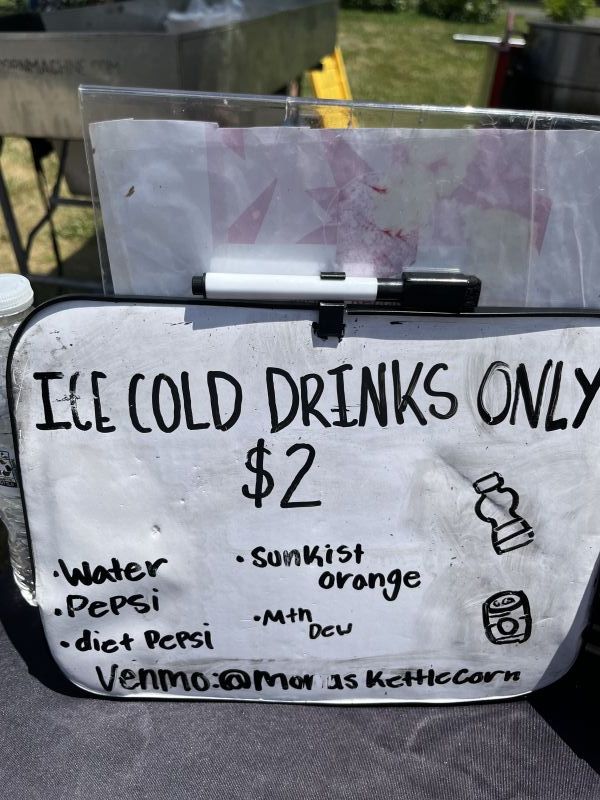 ICE COLD DRINKS ONLY
$2
• Water
• Pepsi
• diet Pepsi
• Sunkist
orange
• Mtn
Dew
Venmo: @ Kettlecorn